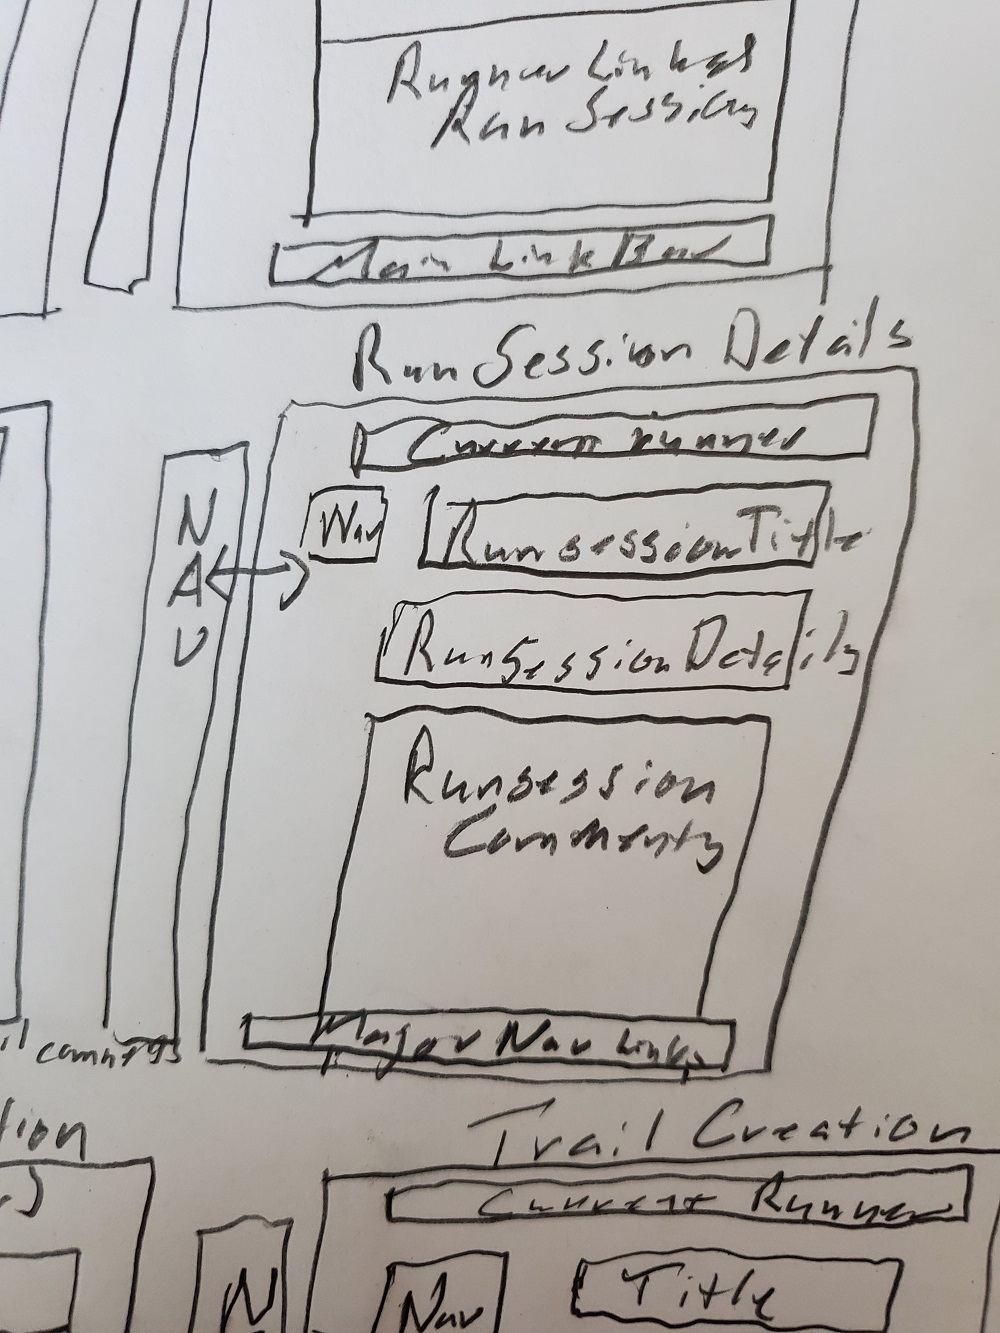 Runner Linked
Run Session
Main Link Bar
Run Session Details
Current Runner
N
A
V
Nav
RunsessionTitle
RunSessionDetails
Runsession
Comments
Major Nav Links
tion
Trail Creation
Current Runner
N
Nav
Title